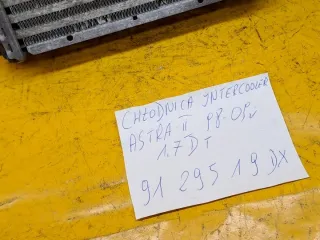 CHŁODNICA INTERCOOLER
ASTRA II 98-05r
1.7 DT
91 295 19 DX